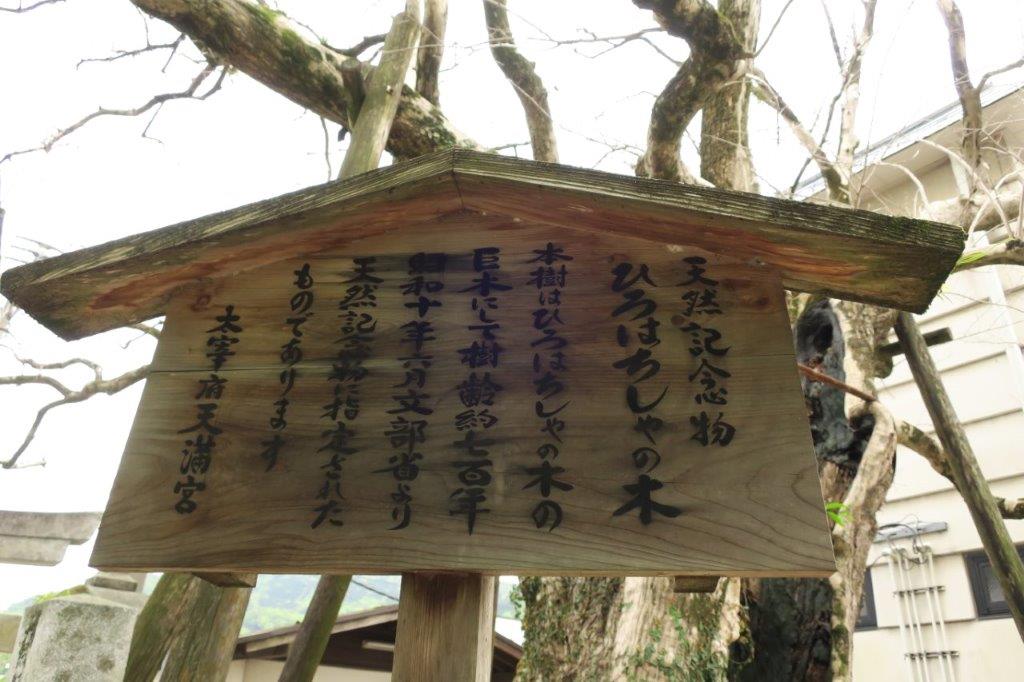 天然記念物
ひろはちしゃの木
本樹はひろはちしゃの木の
巨木にして樹齢約七百年
昭和十年六月文部省より
天然記念物に指定された
ものであります
太宰府天満宮